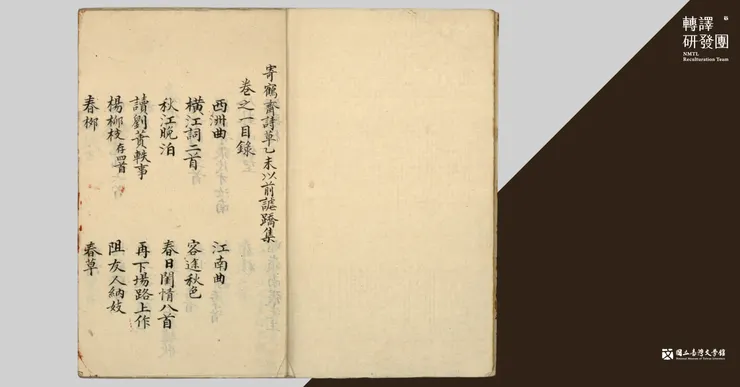 寄鶴齋詩草乙未以前謔蹻集
卷之一目錄
西洲曲 江南曲
橫江詞二首 客途秋色
秋江晚泊 春日閨情八首
讀劉蕡軼事 再下場路上作
楊柳枝存四首 阻友人納妓
春柳 春草
轉譯
研發團
NMTL
Reculturation Team
國立台灣文學館
National Museum of Taiwan Literature